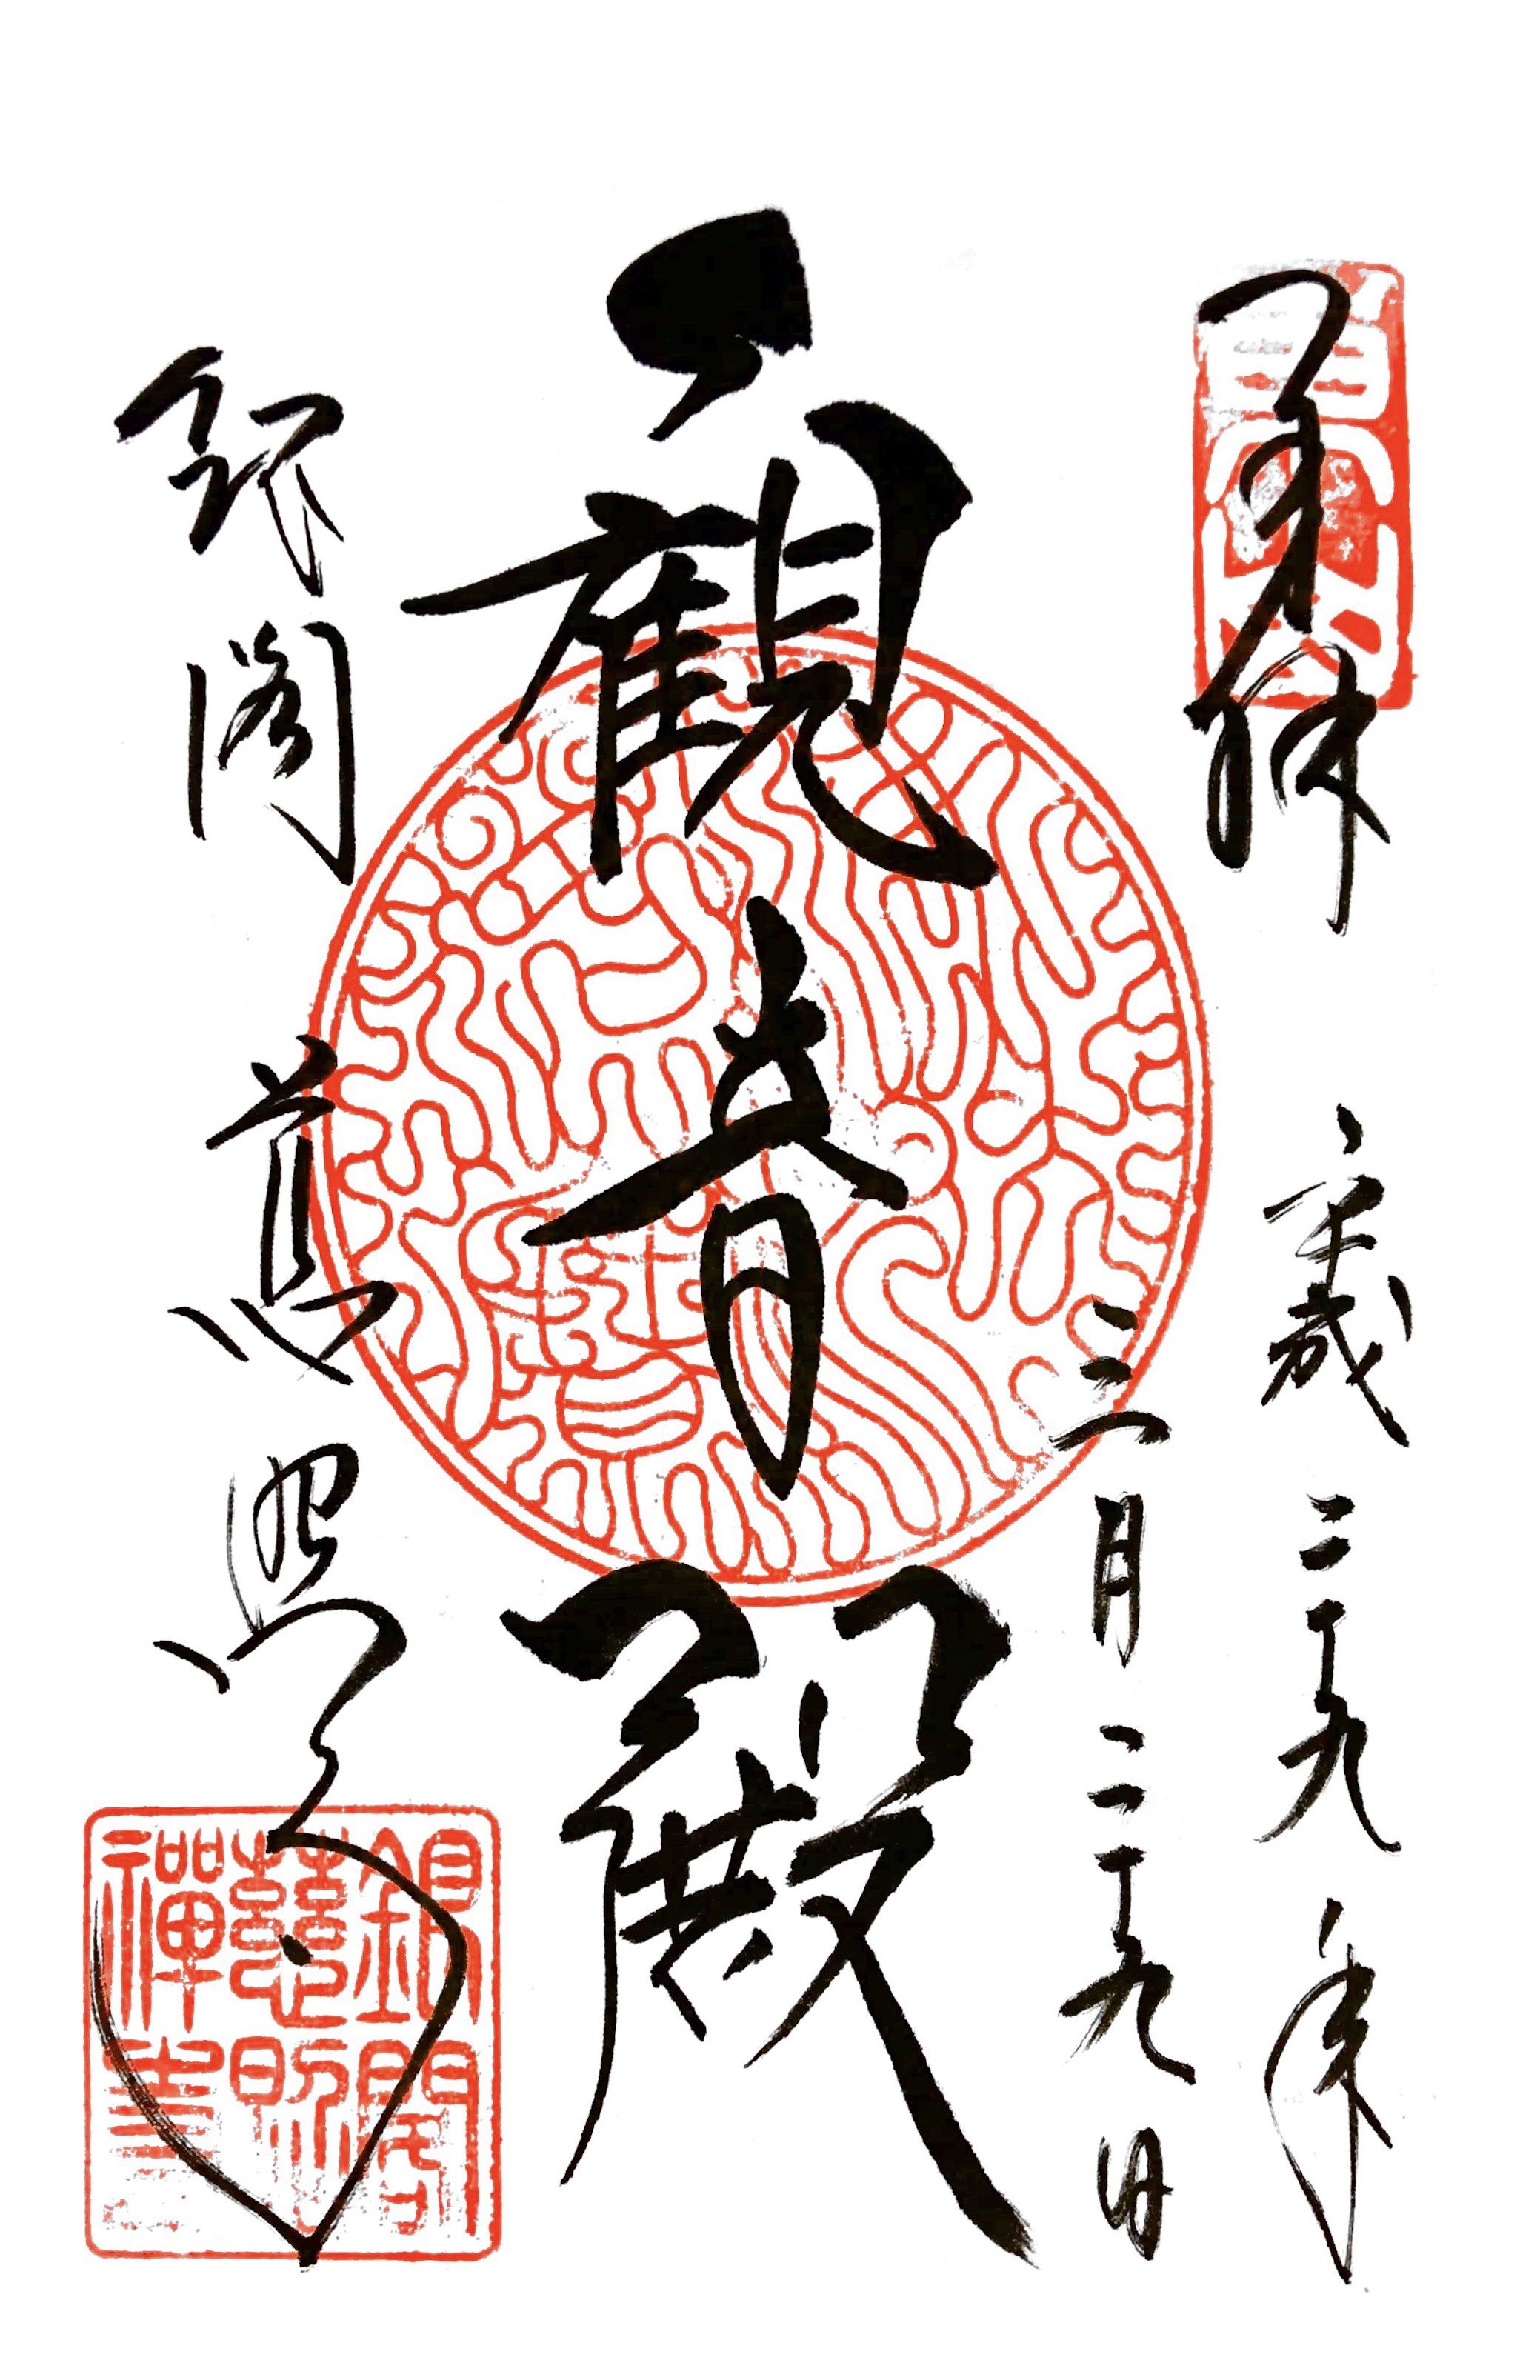 奉拝
平成二十九年
三月二十九日
観音殿
銀閣慈照寺
銀閣
慈照
禪寺